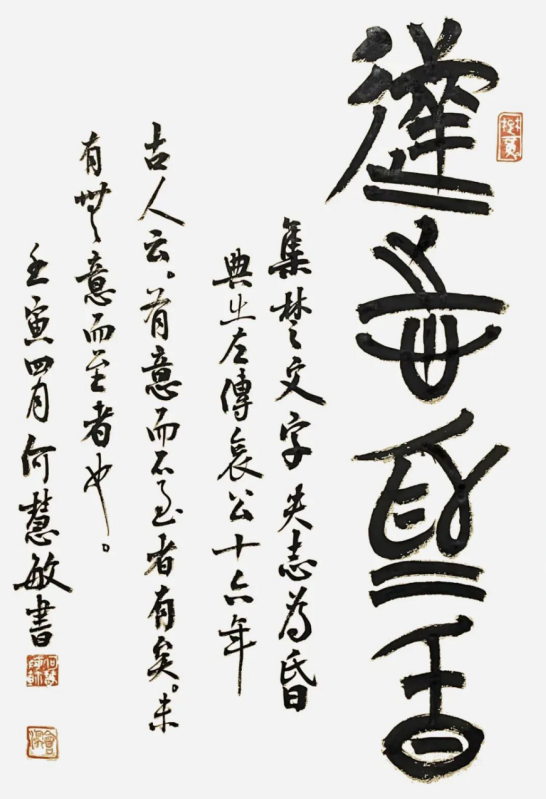 失志為昏
集楚文字失志為昏
典出左傳哀公十六年
古人云。有意而不至者有矣。未
有無意而至者也。
壬寅四月何慧敏書